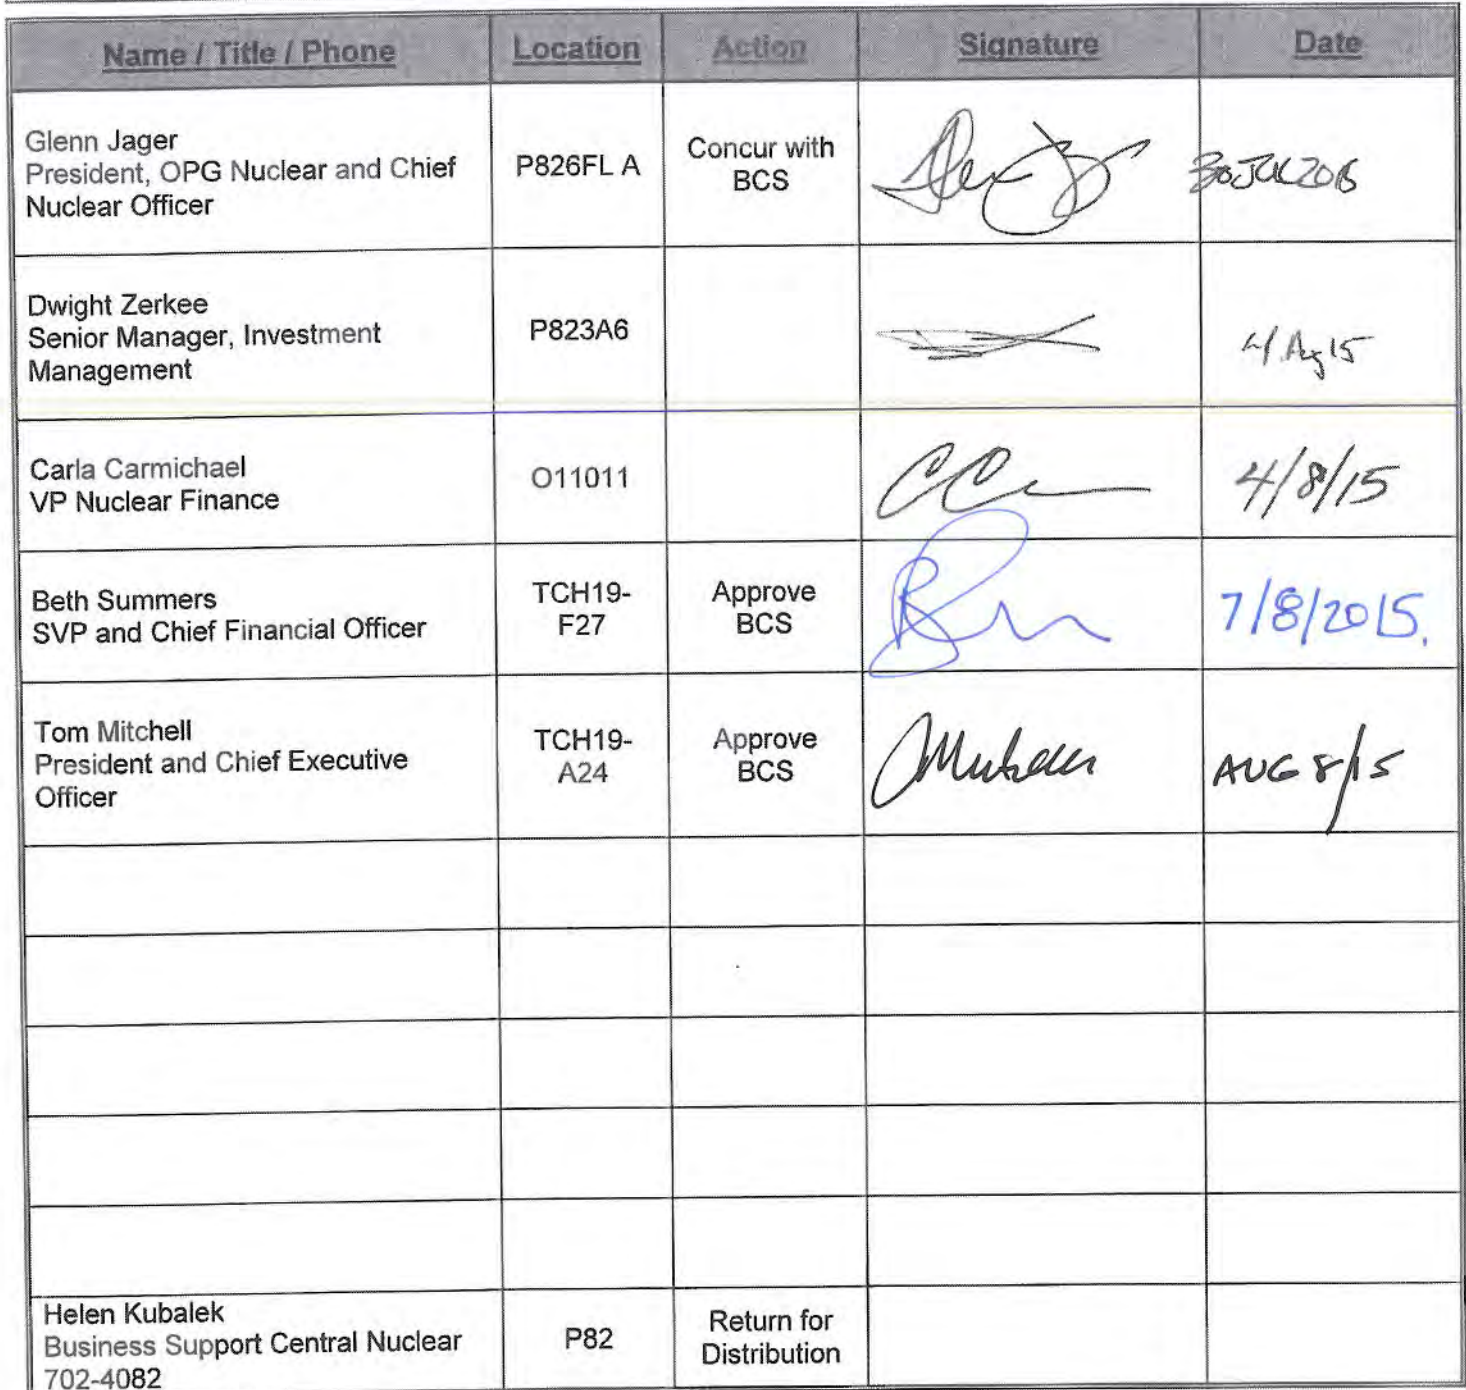 Name / Title / Phone Location Action Signature Date
Glenn Jager
President, OPG Nuclear and Chief
Nuclear Officer
P826FL A
Concur with
BCS
Dwight Zerkee
Senior Manager, Investment
Management
P823A6
4 Aug 15
Carla Carmichael
VP Nuclear Finance
O11011
4/8/15
Beth Summers
SVP and Chief Financial Officer
TCH19-
F27
Approve
BCS
7/8/2015.
Tom Mitchell
President and Chief Executive
Officer
TCH19-
A24
Approve
BCS
AUG 8/15
Helen Kubalek
Business Support Central Nuclear
702-4082
P82
Return for
Distribution